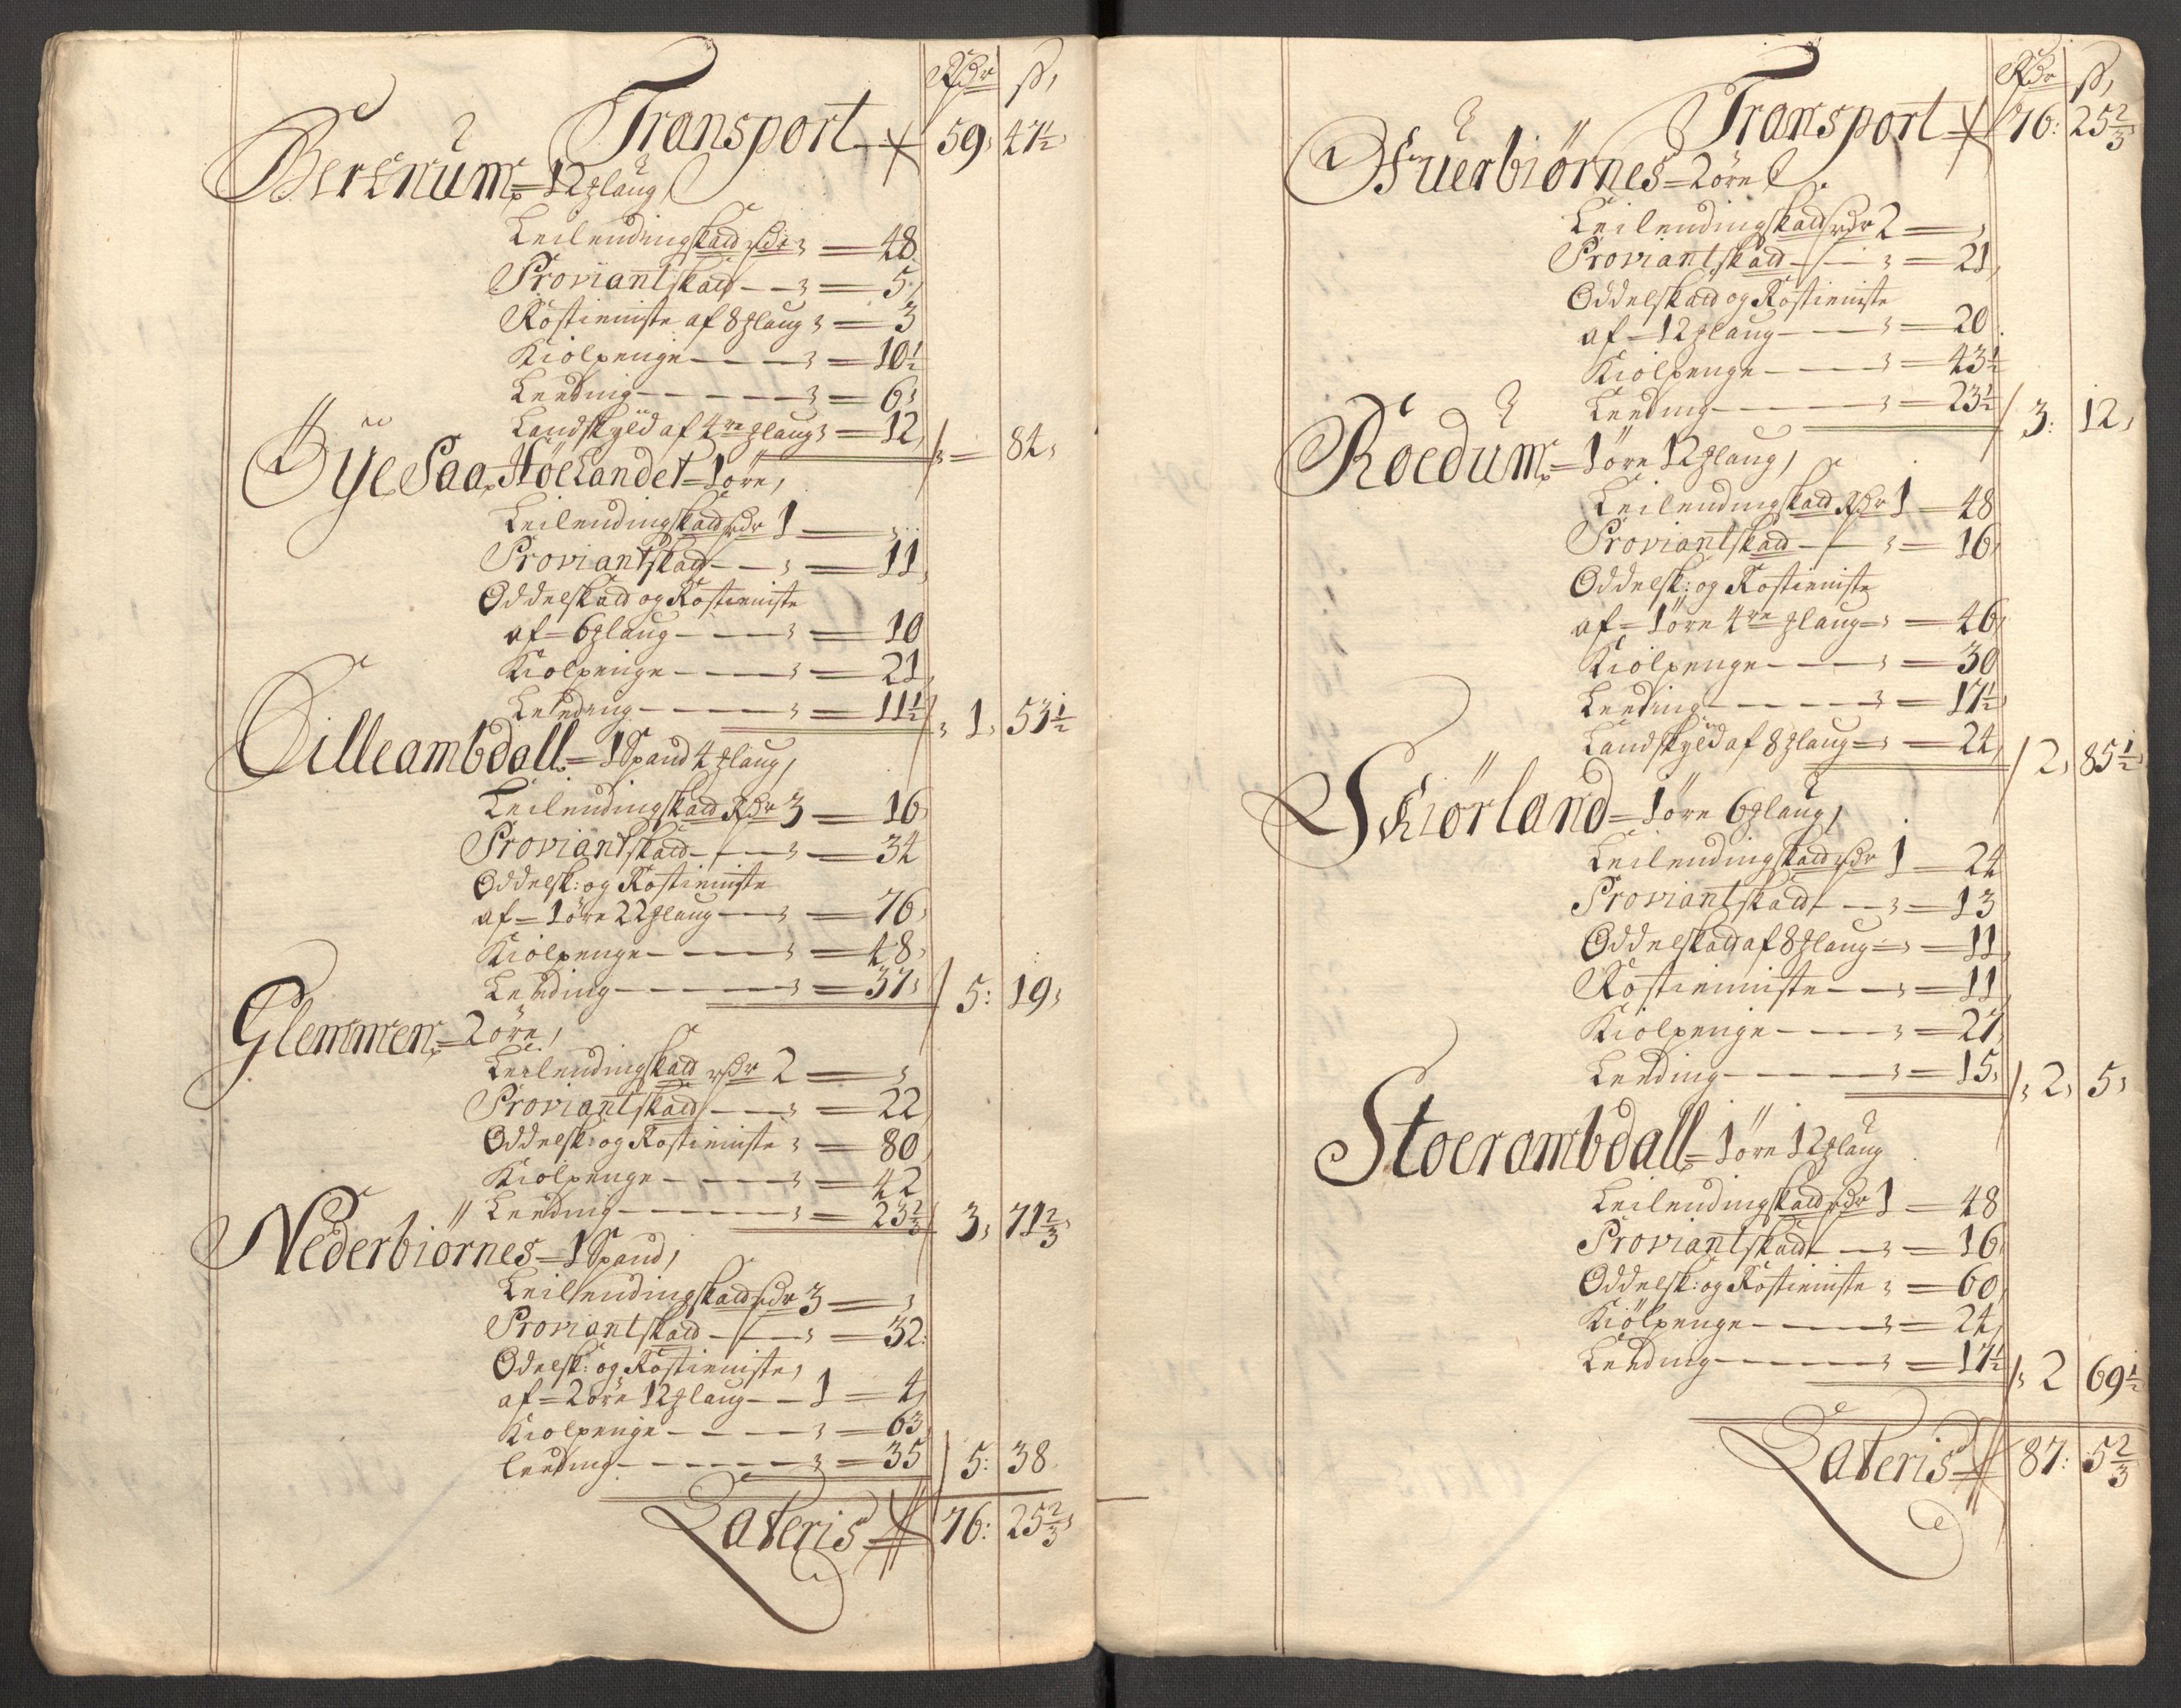 Rdr ß
Transport 59 47½
Berrnum 12 Jlaug
Leilendingskatt rdr 48
Proviantskatt 5
Rostieniste af 8 Jlaug 3
Kiolpenge 10½
Leeding 6
Landskyld af 4re Jlaug 12 84
Øye Paa Höelandet 1 öre
Leilendingskatt rdr 1
Proviantskatt 11
Oddelskatt og Rostieniste
af 6 Jlaug 10
Kiolpenge 21
Leeding 11½ 1 53½
Lilleambdall 1 Spand 4 Jlaug
Leilendingskatt Rdr 3 16
Proviantskatt 34
Oddelsk: og Rostieniste
af 1 öre 22 Jlaug 76
Kiolpenge 48
Leeding 37 5: 19
Glemmen 2 öre
Leilendingskatt rdr 2
Proviantskatt 22
Oddelsk: og Rostieniste 80
Kiolpenge 42
Leeding 23⅔ 3 71⅔
Nederbiörnes 1 Spand
Leilendingskatt rdr 3
Proviantskatt 32
Odelsk: og Rostieniste
af 2 öre 12 Jlaug 1 4
Kiolpenge 63
Leeding 35 5: 38
Lateris 76: 25⅔
Rdr ß
Transport 76: 25⅔
Öfuerbiörnes 2 öre
Leilendingskatt rdr 2
Proviantskatt 21
Oddelskatt og Rostieniste
af 12 Jlaug 20
Kiolpenge 43½
Leeding 23½ 3: 12
Roedum 1 öre 12 Jlaug
Leilendingskatt Rdr 1 48
Proviantskatt 16
Oddelsk: og Rostieniste
af 1 öre 4re Jlaug 46
Kiölpenge 30
Leeding 17½
Landskyld af 8 Jlaug 24 2 85½
Skiörland 1 öre 6 Jlaug
Leilendingskatt rdr 1 24
Proviantskatt 13
Oddelskatt af 8 Jlaug 11
Rostieniste 11
Kiolpenge 27
Leeding 15 2 5
Stoerambdall 1 öre 12 Jlaug
Leilendingskatt rdr 1 48
Proviantskatt 16
Oddelsk: og Rostieniste 60
Kiölpenge 24
Leeding 17½ 2 69½
Lateris 87: 5⅔